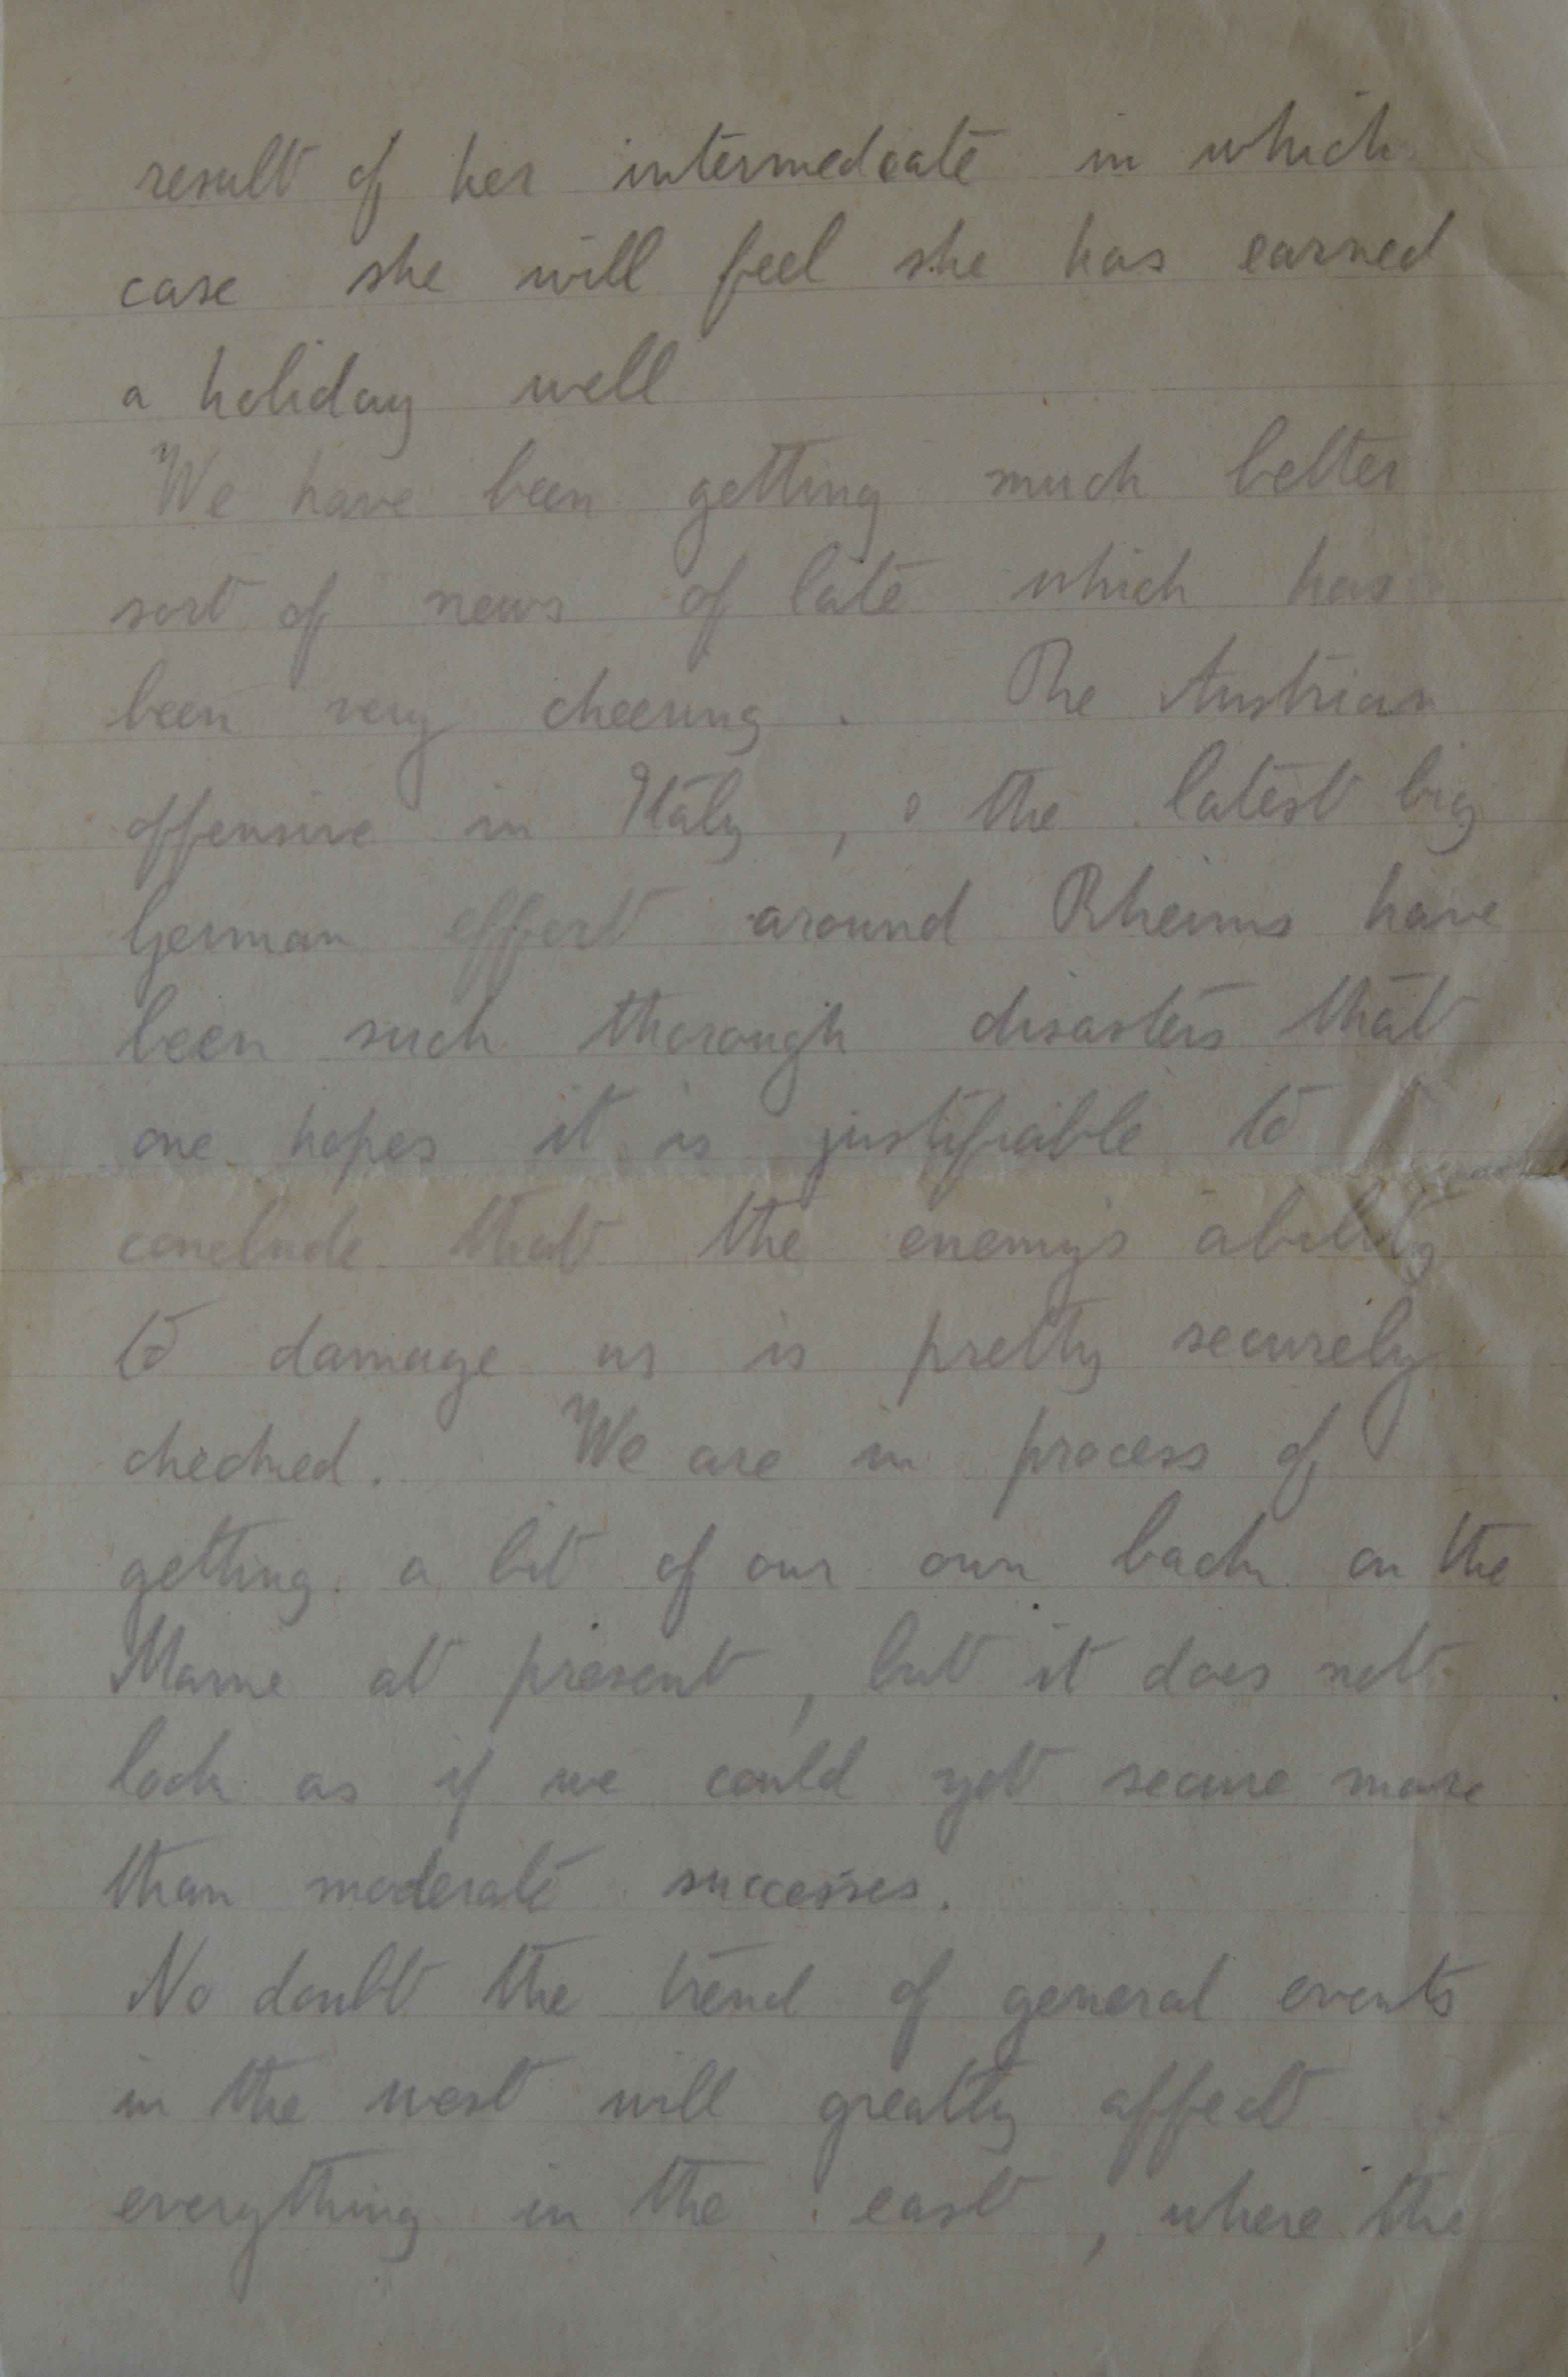 result of her intermediate in which
case she will feel she has earned
a holiday well
We have been getting much better
sort of news of late which has
been very cheering. The Austrian
offensive in Italy, & the latest big
German effort around Rheims have
been such thorough disasters that
one hopes it is justifiable to
conclude that the enemy's ability
to damage us is pretty securely
checked. We are in process of
getting a bit of our own back on the
Marne at present, but it does not
look as if we could yet secure more
than moderate successes.
No doubt the trend of general events
in the west will greatly affect
everything in the east, where the